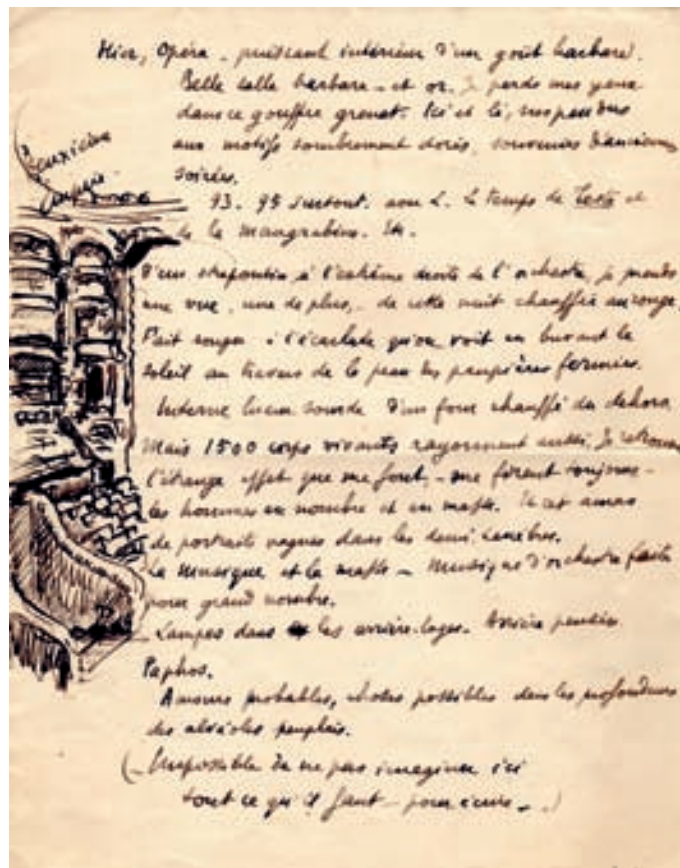 Hier, Opéra - puissant intérieur d'un goût barbare.
Belle salle barbare - et or. Je perds mes yeux
dans ce gouffre grenat. Ici et là, suspendus
aux motifs sombrement dorés, souvenirs d'anciennes
soirées.
Deuxième
Empire
93. 95 surtout. avec L. Le temps de et
de la Maugrabine. Etc.
D'un strapontin à l'extrême droite de l'orchestre, je prends
une vue, une de plus, - de cette nuit chauffée au rouge.
Fait songer à l'écarlate qu'on voit en buvant le
soleil au travers de la peau des paupières fermées.
Interne lueur sourde d'un four chauffé du dehors.
Mais 1500 corps vivants rayonnent aussi. Je retrouve
l'étrange effet que me font, - me firent toujours -
les hommes en nombre et en masse. Et cet amas
de portraits vagues dans les demi-ténèbres.
La musique et la masse - Musique d'orchestre faite
pour grand nombre.
Lampes dans les arrière-loges. Arrière pensées
Paphos.
Amours probables, choses possibles dans les profondeurs
des alvéoles peuplés.
(- Impossible de ne pas imaginer ici
tout ce qu'il faut - pour écrire - .)